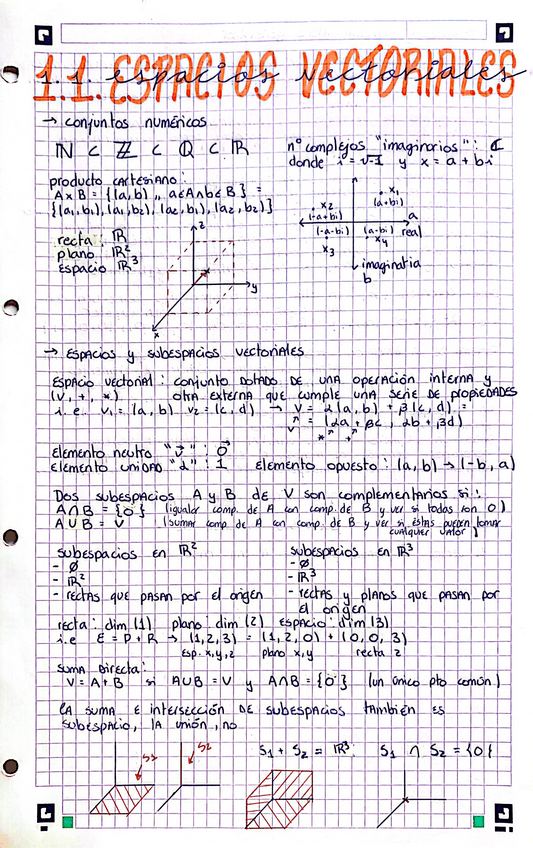 1.1. ESPACIOS VECTORIALES
1.1. espacios vectoriales
→ conjuntos numéricos
ℕ ⊂ ℤ ⊂ ℚ ⊂ ℝ
nº complejos "imaginarios": ℂ
donde i = √-1 y x = a + bi
producto cartesiano:
A x B = {(a, b) ,, a∈A ∧ b∈B} =
{(a₁, b₁), (a₁, b₂), (a₂, b₁), (a₂, b₂)}
x₂
(-a+bi)
x₁
(a+bi)
a
real
(-a-bi)
x₃
(a-bi)
x₄
imaginaria
b
recta: ℝ
plano: ℝ²
espacio ℝ³
z
y
x
→ Espacios y subespacios vectoriales
Espacio vectorial: conjunto dotado de una operación interna y
(V, +, *) otra externa que cumple una serie de propiedades
i.e. v₁ = (a, b) v₂ = (c, d) → V = α(a, b) + β(c, d) =
= (αa + βc, αb + βd)
Elemento neutro "v⃗": 0⃗
Elemento unidad "α": 1
Elemento opuesto: (a, b) → (-b, a)
Dos subespacios A y B de V son complementarios si:
A ∩ B = {0⃗} (igualar comp. de A con comp. de B y ver si todas son 0)
A ∪ B = V (sumar comp. de A con comp. de B y ver si éstas pueden tomar
cualquier valor)
subespacios en ℝ²
- ∅
- ℝ²
- rectas que pasan por el origen
subespacios en ℝ³
- ∅
- ℝ³
- rectas y planos que pasan por
el origen
recta: dim (1) plano: dim (2) espacio: dim (3)
i.e E = P + R → (1, 2, 3) = (1, 2, 0) + (0, 0, 3)
Esp. x,y,z plano x,y recta z
suma directa:
V = A + B si A ∪ B = V y A ∩ B = {0⃗} (un único pto común)
la suma e intersección de subespacios también es
subespacio, la unión, no
S₁
S₂
S₁ + S₂ = ℝ³
S₁ ∩ S₂ = {0}